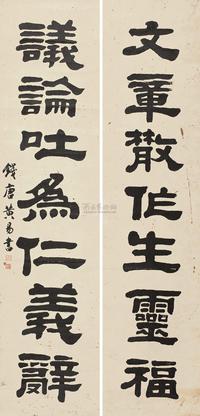 文章散作生靈福
議論吐為仁義辭
錢唐黃易書